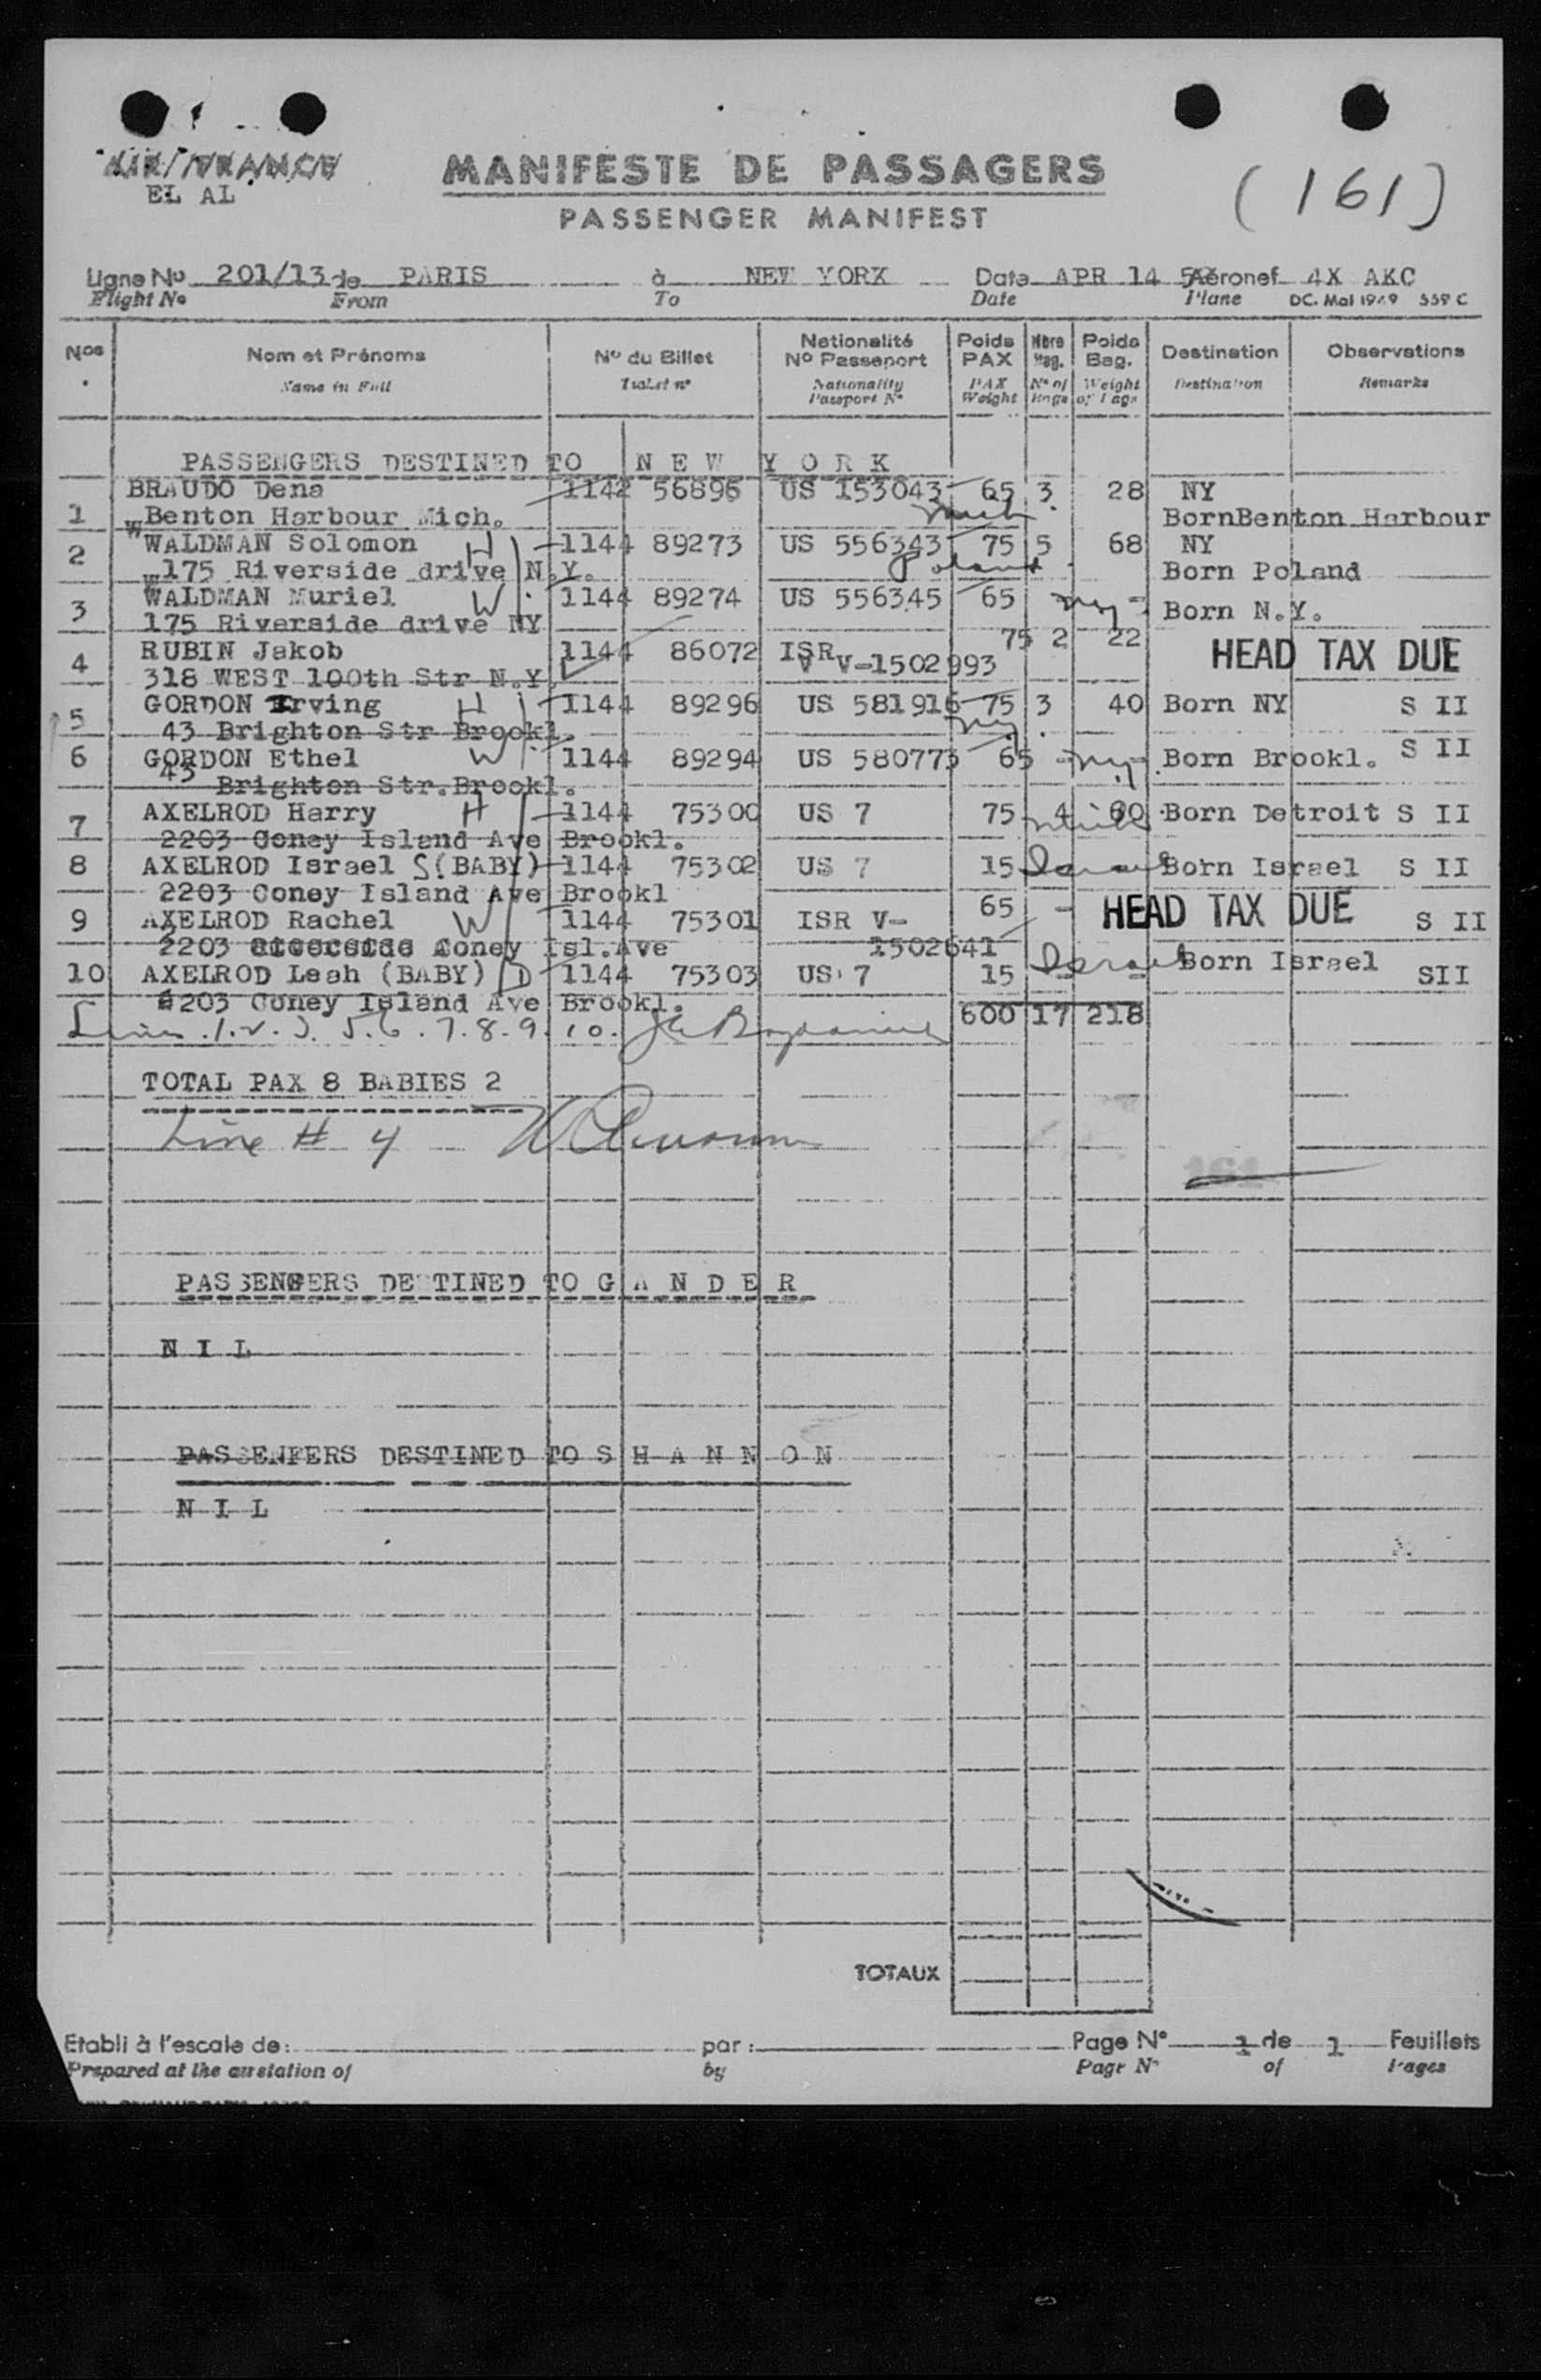 AIR FRANCE
EL AL
MANIFESTE DE PASSAGERS
PASSENGER MANIFEST
(161)
Ligne No 201/13 de PARIS à NEW YORK Date APR 14 Aéronef 4X AKC
Flight No From To Date Plane DC. Mai 1949 559 C
Nos Nom et Prénoms No du Billet Nationalité No Passeport Poids PAX Nbre Bag. Poids Bag. Destination Observations
Name in Full Ticket no Nationality Passport No PAX Weight No of Bags Weight of Bags Destination Remarks
PASSENGERS DESTINED TO N E W Y O R K
1 BRAUDO Dena 1142 56896 US 153043 65 3 28 NY
Benton Harbour Mich. Mich BornBenton Harbour
2 WALDMAN Solomon H 1144 89273 US 556343 75 5 68 NY
175 Riverside drive N.Y. Poland Born Poland
3 WALDMAN Muriel W 1144 89274 US 556345 65 NY - Born N.Y.
175 Riverside drive NY
4 RUBIN Jakob 1144 86072 ISR V-1502993 75 2 22 HEAD TAX DUE
318 WEST 100th Str N.Y.
5 GORDON Irving H 1144 89296 US 581916 75 3 40 Born NY S II
43 Brighton Str Brookl. NY
6 GORDON Ethel W 1144 89294 US 580773 65 - NY - Born Brookl. S II
43 Brighton Str.Brookl.
7 AXELROD Harry H 1144 75300 US 7 75 4 60 Born Detroit S II
2203 Coney Island Ave Brookl.
8 AXELROD Israel S (BABY) 1144 75302 US 7 15 Israel Born Israel S II
2203 Coney Island Ave Brookl
9 AXELROD Rachel W 1144 75301 ISR V- 65 - HEAD TAX DUE S II
2203 Coney Isl.Ave 1502641
10 AXELROD Leah (BABY) D 1144 75303 US 7 15 Israel Born Israel SII
2203 Coney Island Ave Brookl.
600 17 218
Lines 1. 2. 3. 5. 6. 7. 8. 9. 10.
TOTAL PAX 8 BABIES 2
Line # 4
161
PASSENGERS DESTINED TO G A N D E R
N I L
PASSENFERS DESTINED TO S H A N N O N
N I L
TOTAUX
Etabli à l'escale de: par: Page No 1 de 1 Feuillets
Prepared at the airstation of by Page No of Pages